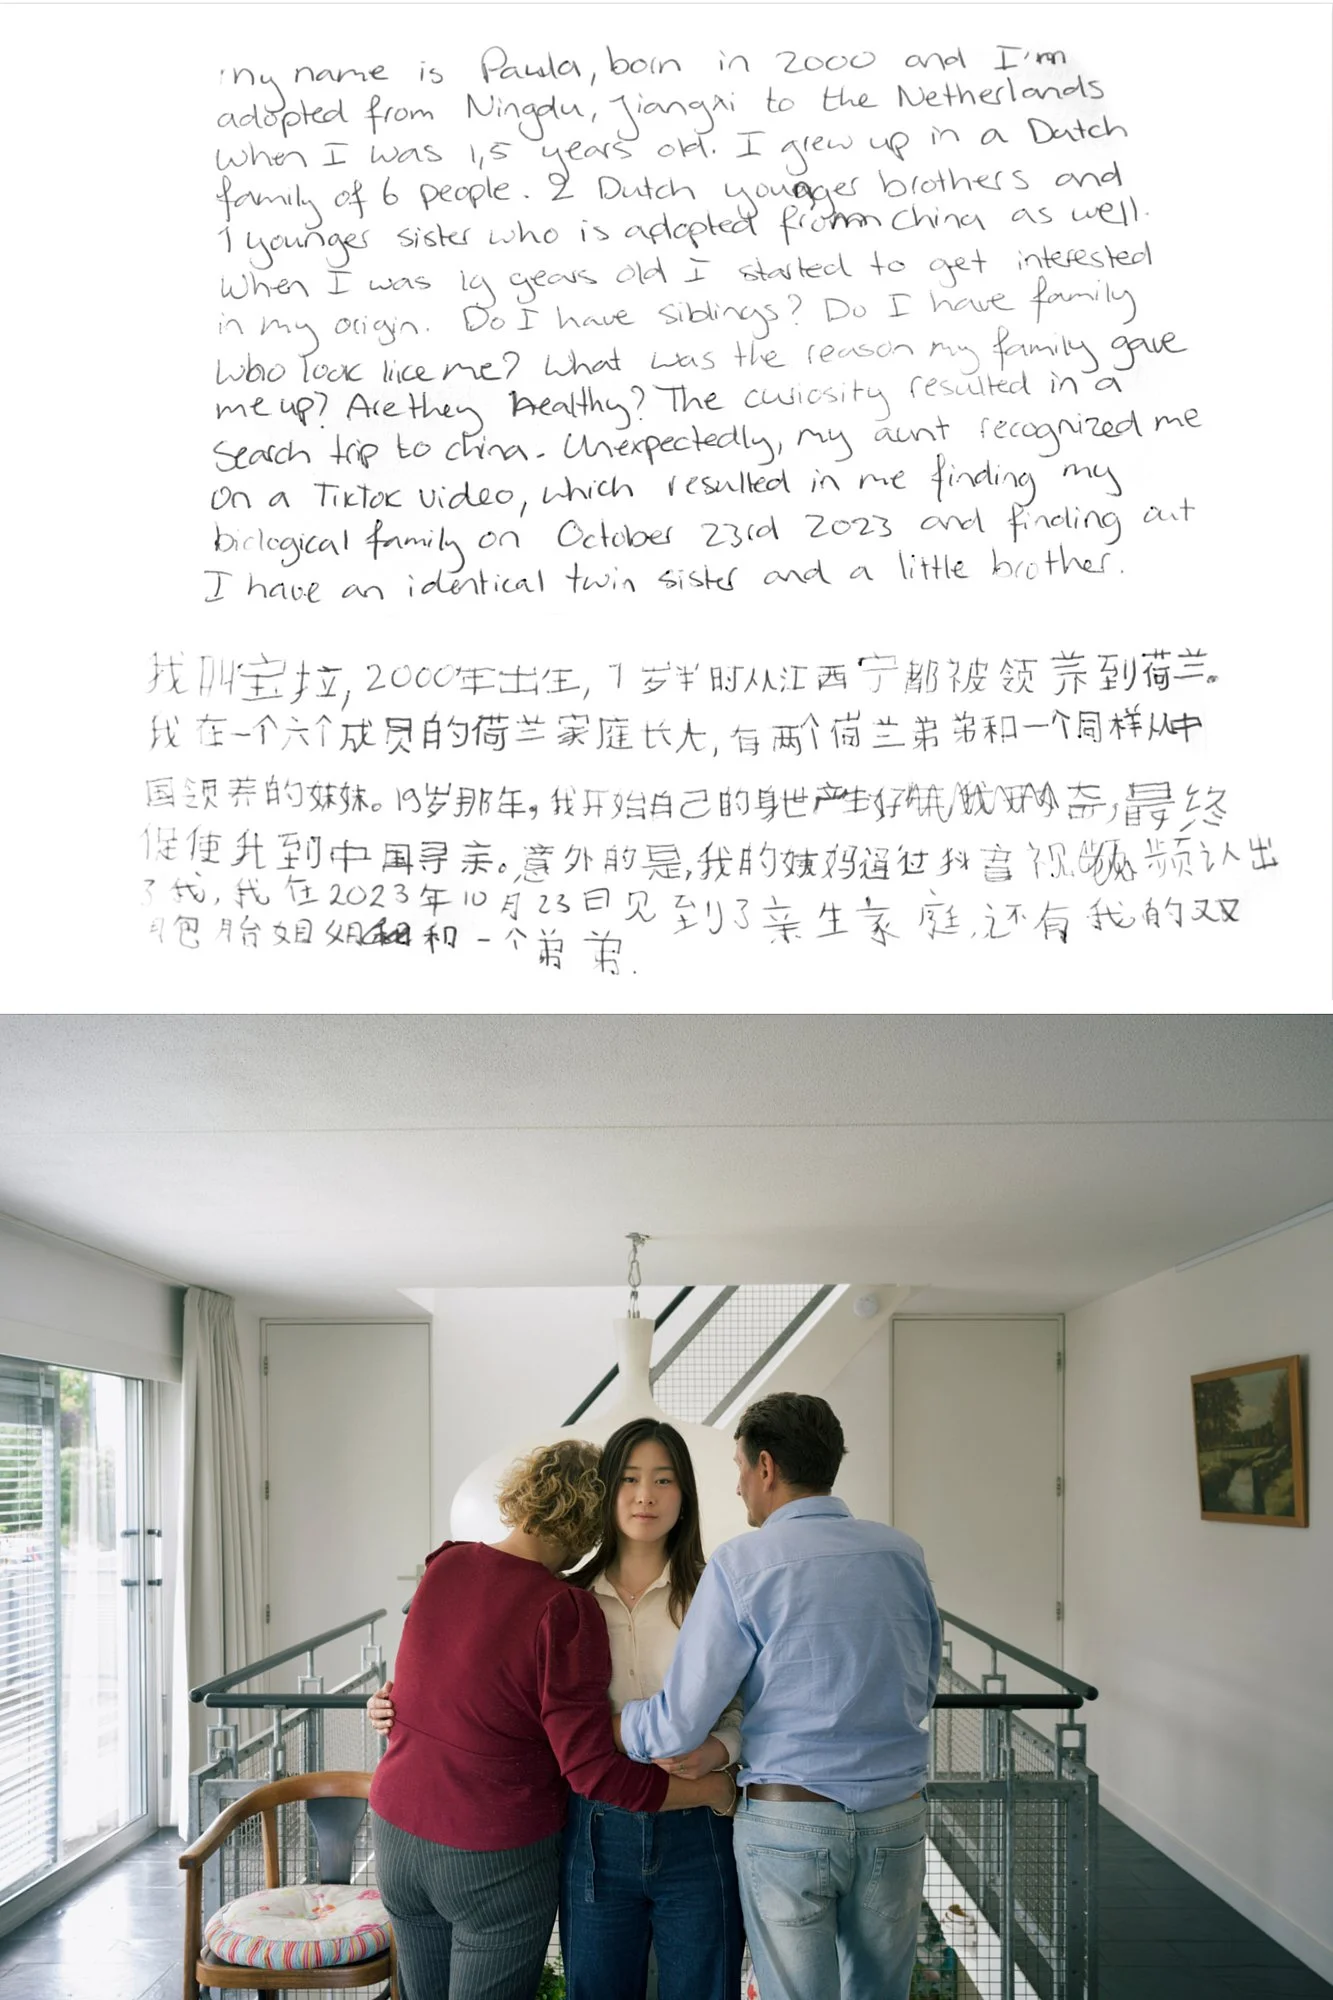 my name is Paula, born in 2000 and I'm
adopted from Ningdu, Jiangxi to the Netherlands
when I was 1,5 years old. I grew up in a Dutch
family of 6 people. 2 Dutch younger brothers and
1 younger sister who is adopted from China as well.
When I was 19 years old I started to get interested
in my origin. Do I have siblings? Do I have family
who look like me? What was the reason my family gave
me up? Are they healthy? The curiosity resulted in a
search trip to china. Unexpectedly, my aunt recognized me
on a TikTok video, which resulted in me finding my
biological family on October 23rd 2023 and finding out
I have an identical twin sister and a little brother.
我叫宝拉, 2000年出生, 1岁半时从江西宁都被领养到荷兰。
我在一个六个成员的荷兰家庭长大, 有两个荷兰弟弟和一个同样从中
国领养的妹妹。19岁那年, 我开始自己的身世产生好奇, 最终
促使我到中国寻亲。意外的是, 我的姨妈通过抖音视频认出
了我, 我在2023年10月23日见到了亲生家庭, 还有我的双
胞胎姐姐和一个弟弟.